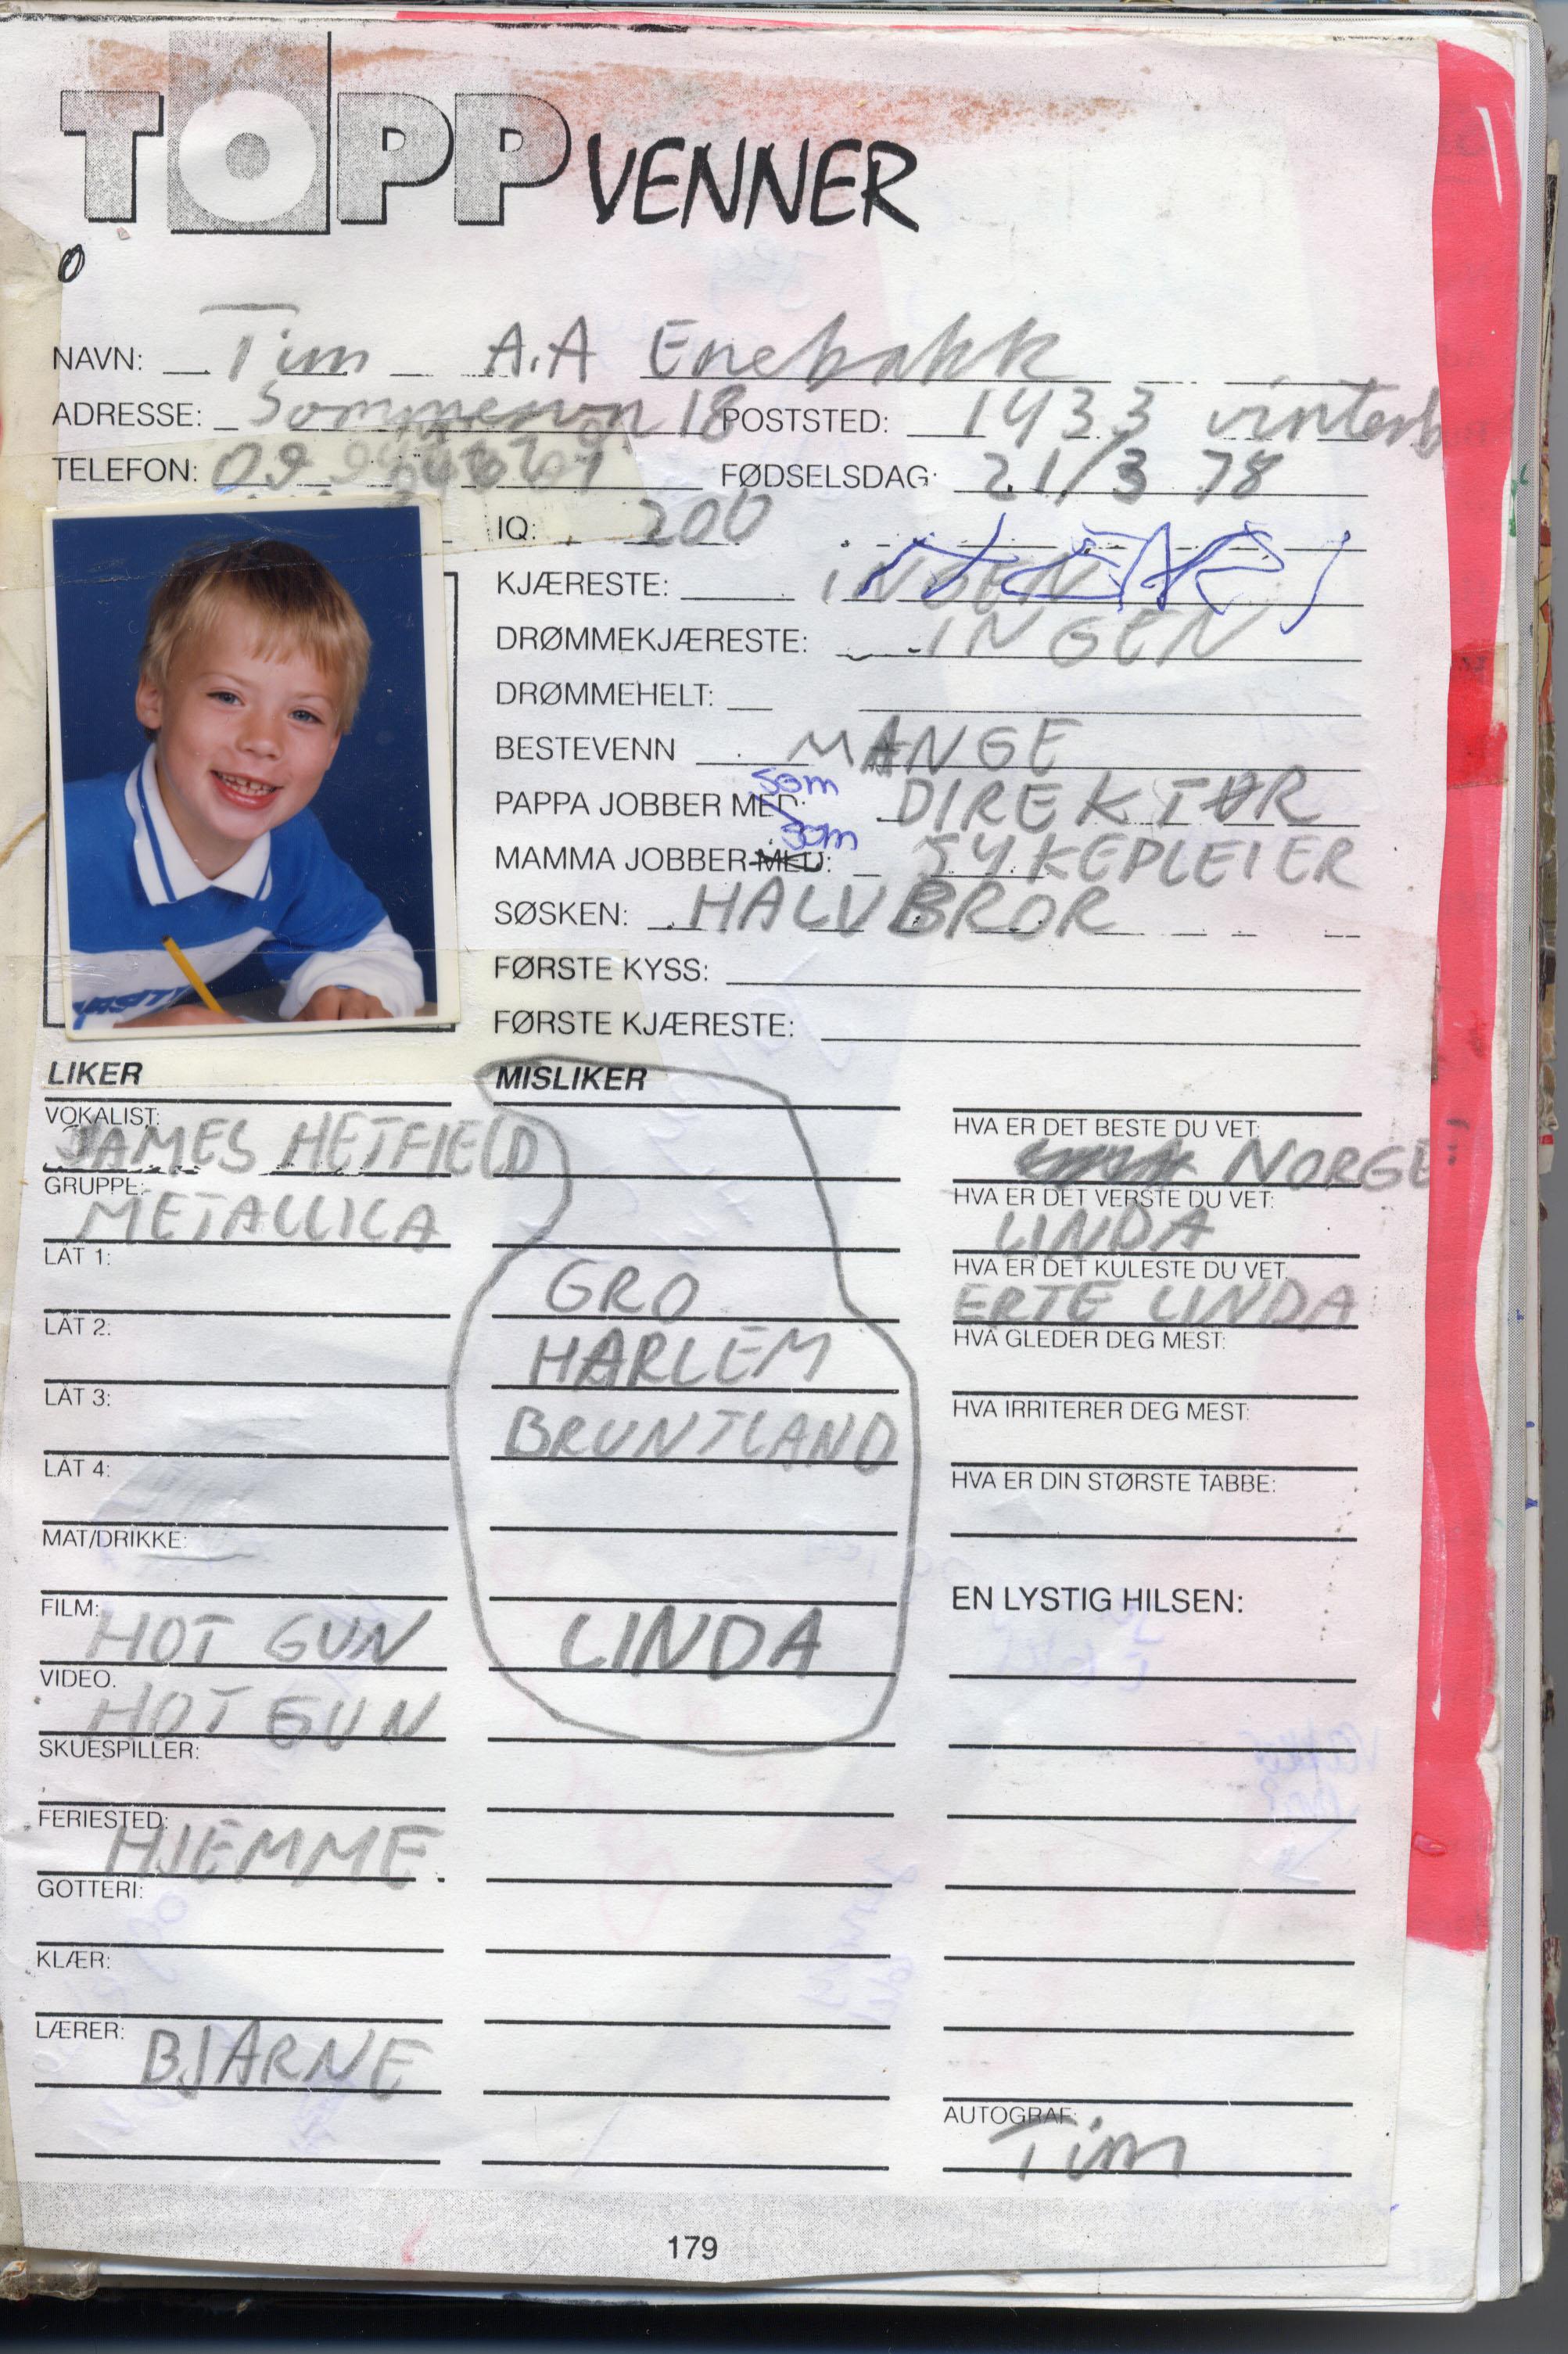 TOPP VENNER
NAVN: Tim A.A Enebakk
ADRESSE: Sommerovn 18 POSTSTED: 1433 vinterb
TELEFON: 09 FØDSELSDAG: 21/3 78
IQ: 200
KJÆRESTE: INGEN
DRØMMEKJÆRESTE: INGEN
DRØMMEHELT:
BESTEVENN MANGE
som
PAPPA JOBBER MED: DIREKTØR
som
MAMMA JOBBER MED: SYKEPLEIER
SØSKEN: HALVBROR
FØRSTE KYSS:
FØRSTE KJÆRESTE:
LIKER
VOKALIST:
JAMES HETFIELD
GRUPPE:
METALLICA
LÅT 1:
LÅT 2:
LÅT 3:
LÅT 4:
MAT/DRIKKE:
FILM:
HOT GUN
VIDEO.
HOT GUN
SKUESPILLER:
FERIESTED:
HJEMME
GOTTERI:
KLÆR:
LÆRER:
BJARNE
MISLIKER
GRO
HARLEM
BRUNTLAND
LINDA
HVA ER DET BESTE DU VET:
NORGE
HVA ER DET VERSTE DU VET:
LINDA
HVA ER DET KULESTE DU VET:
ERTE LINDA
HVA GLEDER DEG MEST:
HVA IRRITERER DEG MEST:
HVA ER DIN STØRSTE TABBE:
EN LYSTIG HILSEN:
AUTOGRAF:
Tim
179